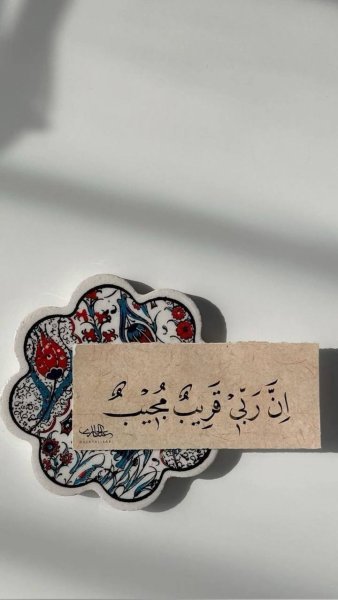 اِنَّ رَبِّيْ قَرِيبٌ مُجِيْبٌ